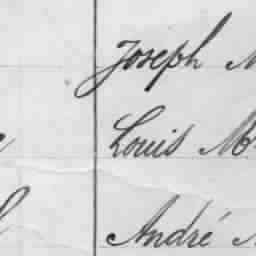 Joseph M
Louis M
André M